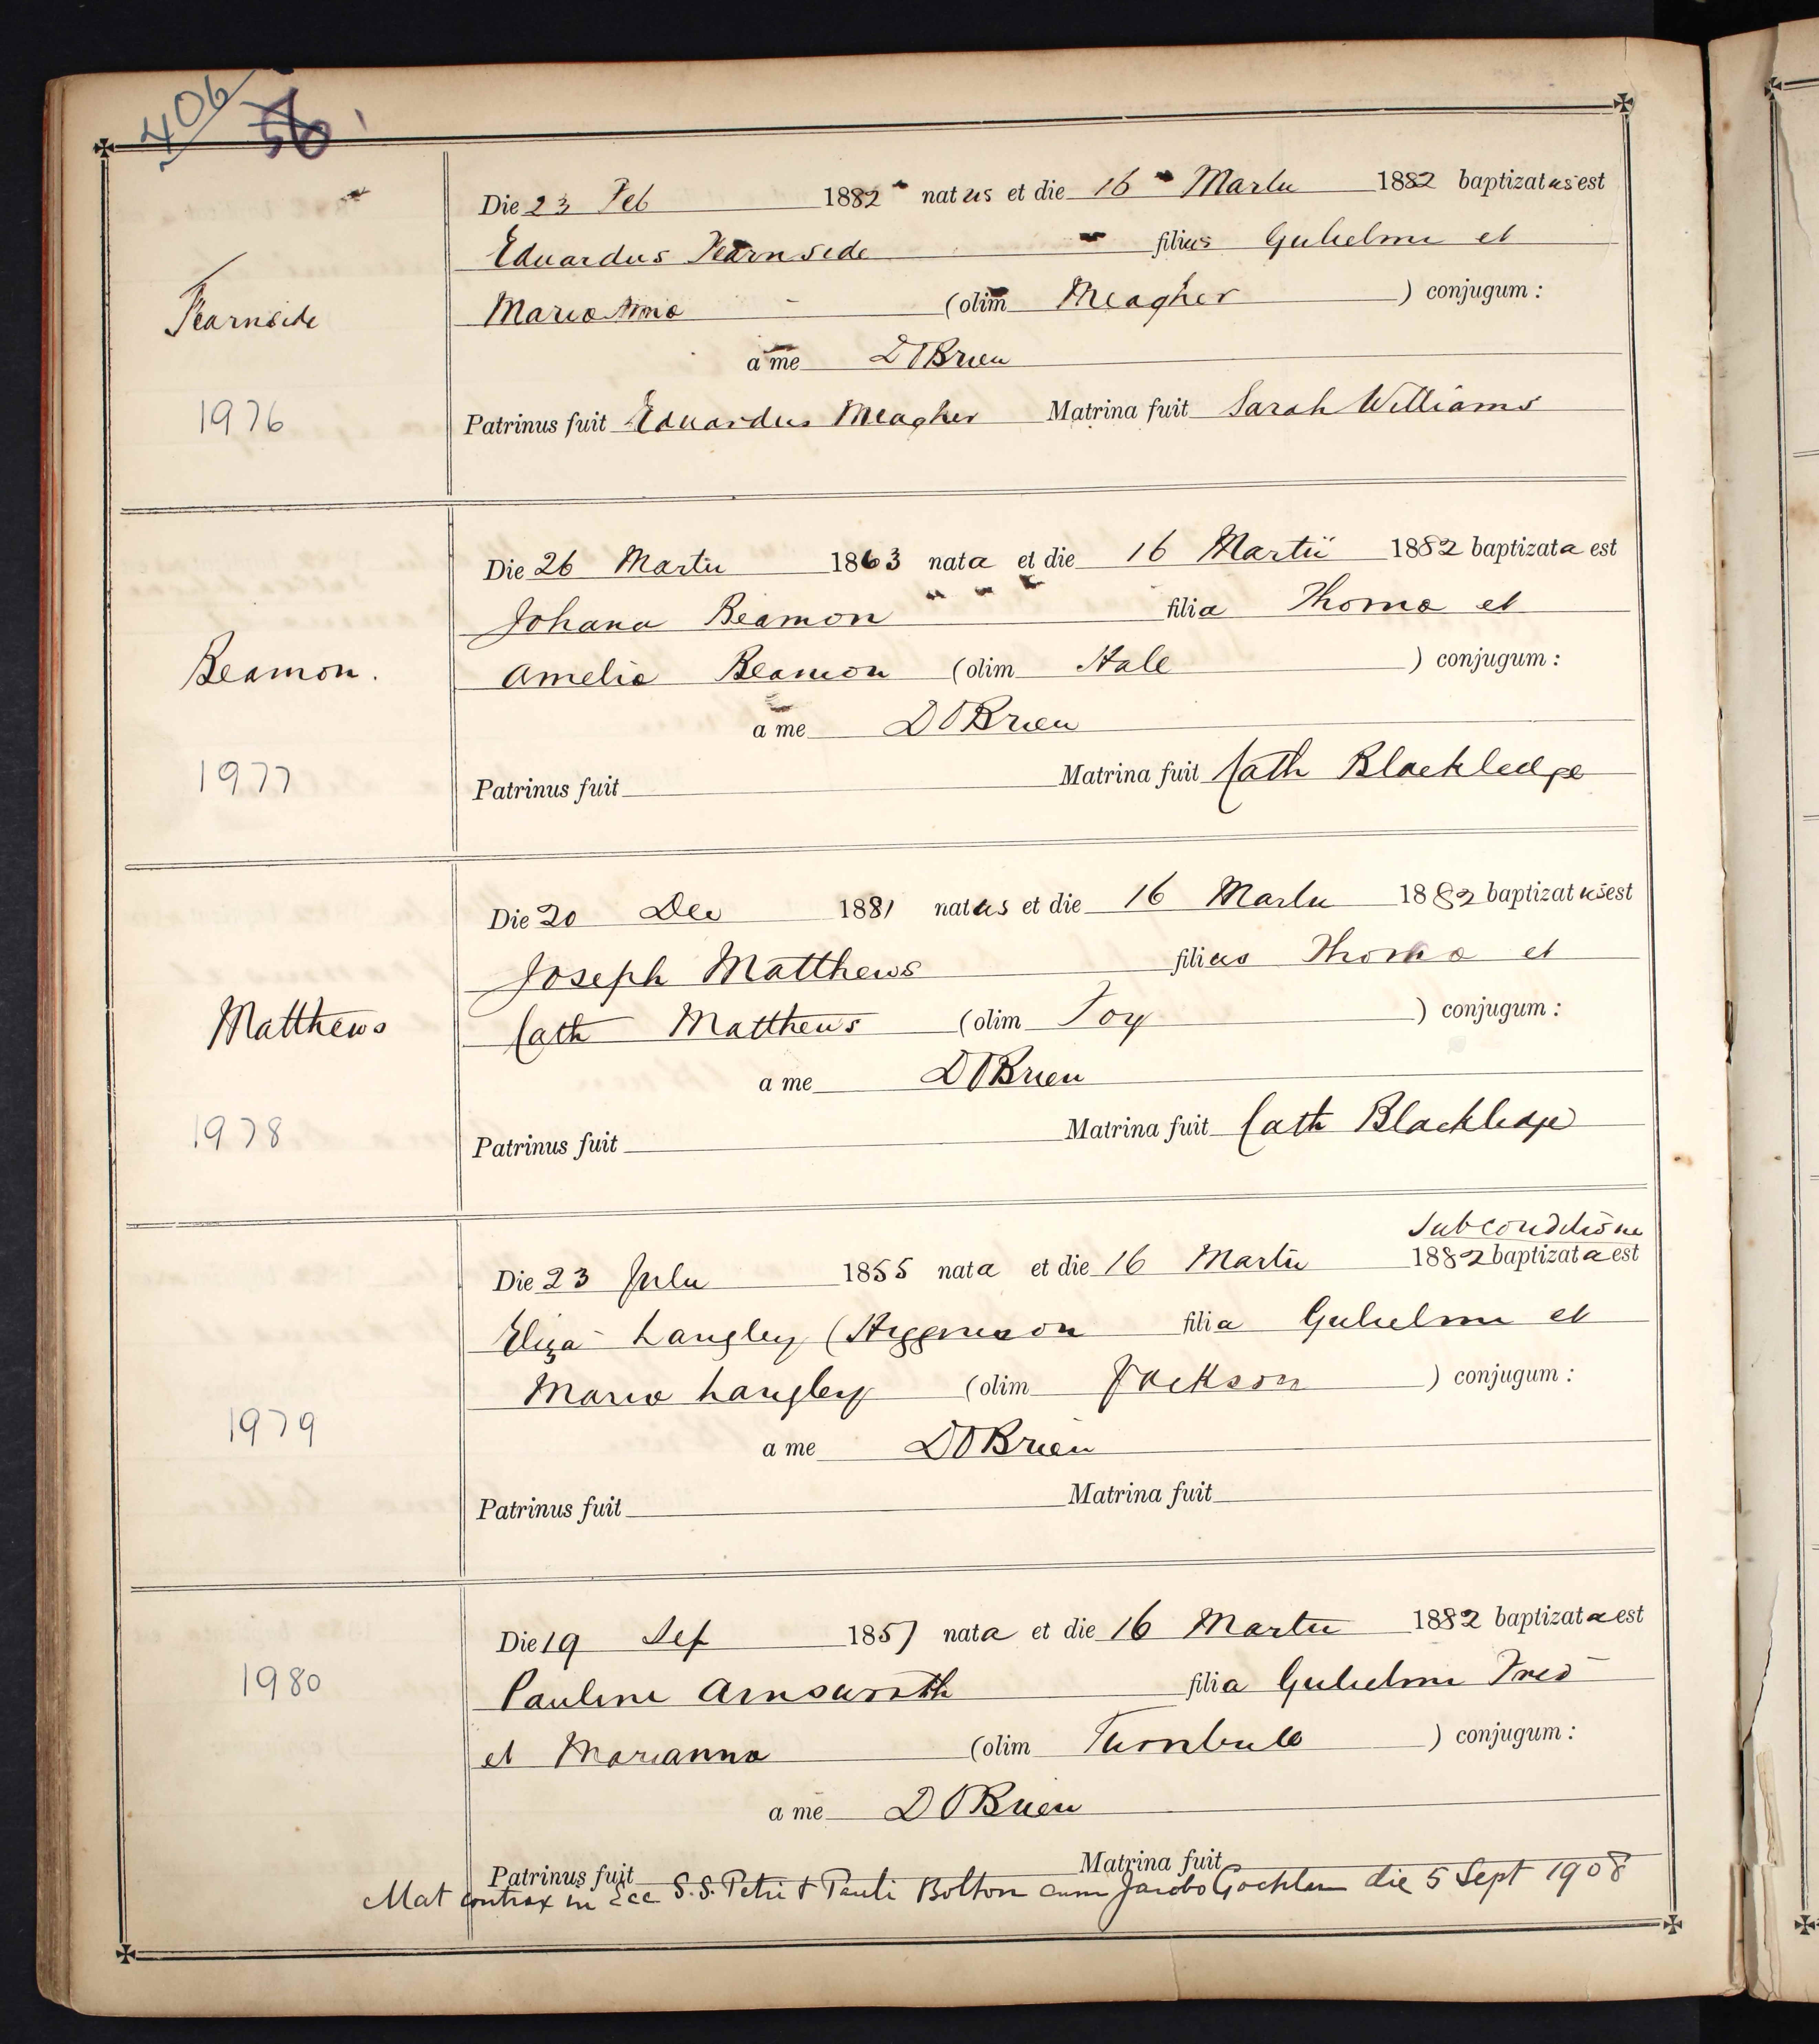 406
56
Die 23 Feb 1882 natus et die 16 Martii 1882 baptizatus est
Eduardus Fearnside filius Gulielmi et
Fearnside
Maria Anna (olim Meagher ) conjugum :
a me D OBrien
1976
Patrinus fuit Eduardus Meagher Matrina fuit Sarah Williams
Die 26 Martii 1863 nata et die 16 Martii 1882 baptizata est
Johana Beamon filia Thoma et
Beamon.
Amelia Beamon (olim Hale ) conjugum :
a me D OBrien
1977
Patrinus fuit Matrina fuit Cath Blackledge
Die 20 Dec 1881 natus et die 16 Martii 1882 baptizatus est
Joseph Matthews filius Thoma et
Matthews
Cath Matthews (olim Foy ) conjugum :
a me D OBrien
1978
Patrinus fuit Matrina fuit Cath Blackledge
Sub conditione
Die 23 Julii 1855 nata et die 16 Martii 1882 baptizata est
Eliza Langley (Higginson filia Gulielmi et
Maria Langley (olim Jackson ) conjugum :
1979
a me D OBrien
Patrinus fuit Matrina fuit
Die 19 Sep 1857 nata et die 16 Martii 1882 baptizata est
1980
Pauline Ainsworth filia Gulielmi Fred
et Marianna (olim Turnbull ) conjugum :
a me D OBrien
Patrinus fuit Matrina fuit
Mat contrax in Ecc S.S. Petri & Pauli Bolton cum Jacobo die 5 Sept 1908